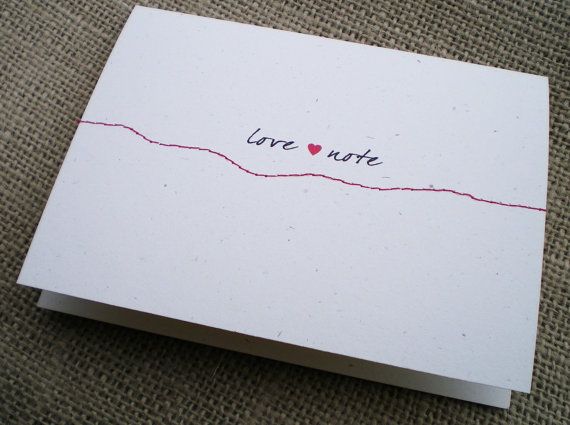 love ♥ note